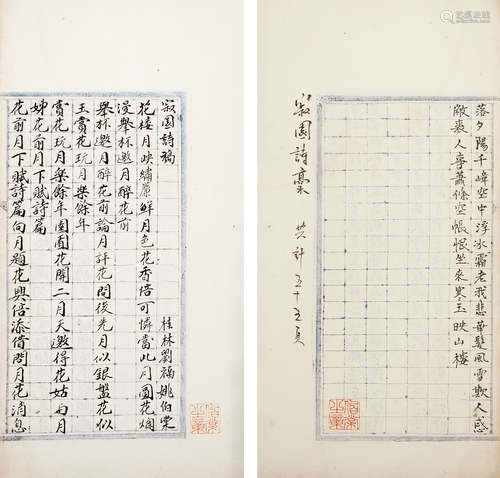 寂園詩稿
桂林劉福姚伯棠
花樓月映繡簾鮮月色花香倍可憐當此月圓花爛
漫舉杯邀月醉花前
舉杯邀月醉花前論月評花問後先月似銀盤花似
玉賞花玩月樂餘年
賞花玩月樂餘年園囿花開二月天邀得花姑與月
姊花前月下賦詩篇
花前月下賦詩篇向月題花興倍添借問月花消息
落夕陽千峰空中浮水霜老我悲華髮風雪欺人感
敝裘人事蕭條空悵恨坐來寒玉映山樓
寂園詩稾
共計五十五頁